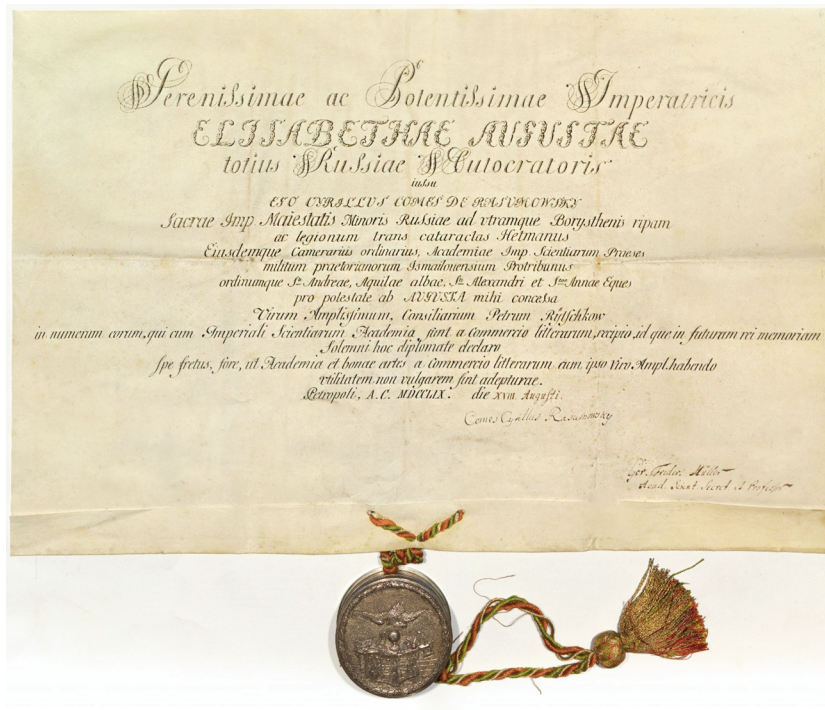 Serenissimae ac Potentissimae Imperatricis
ELISABETHAE AUGUSTAE
totius Russiae Autocratoris
iussu
EGO CYRILLUS COMES DE RASUMOWSKY
Sacrae Imp Maiestatis Minoris Russiae ad vtramque Borysthenis ripam
ac legionum trans cataractas Hetmanus
Eiusdemque Camerarius ordinarius, Academiae Imp Scientiarum Praeses
militum praetorianorum Ismailouensium Protribunus
ordinumque Sti Andreae, Aquilae albae, Sti Alexandri et Stae Annae Eques
pro potestate ab AUGUSTA mihi concessa
Virum Amplissimum, Consiliarium Petrum Rütschkow
in numerum eorum, qui cum Imperiali Scientiarum Academia sint a Commercio litterarum, recipio, id que in futuram rei memoriam
Solemni hoc diplomate declaro
Spe fretus, fore, ut Academia et bonae artes a Commercio litterarum cum ipso Viro Ampl. habendo
vtilitatem non vulgarem sint adepturae.
Petropoli, A.C. MDCCLIX. die XXIII. Augusti.
Comes Cyrillus Rasumowsky
Ger. Frider. Müller
Acad. Scient. Secret. & Professor